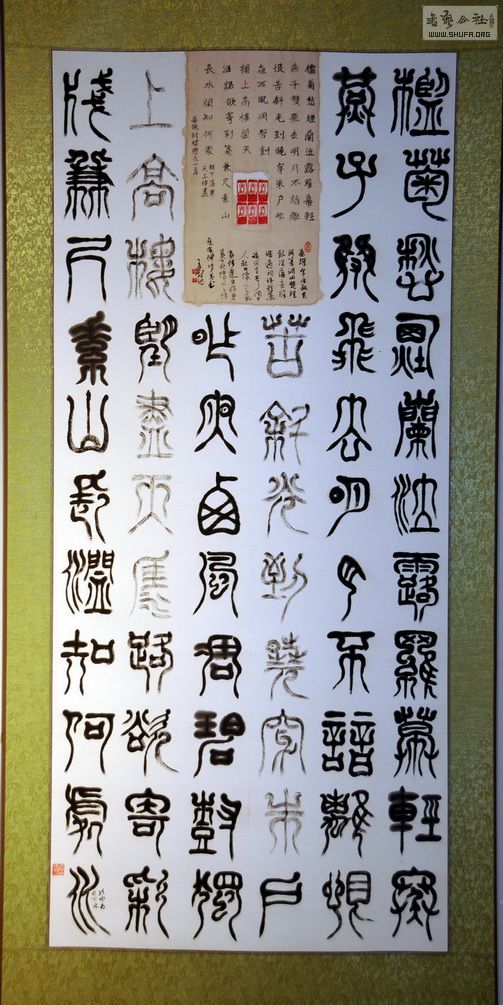 書藝公社
WWW.SHUFA.ORG
檻菊愁煙蘭泣露羅幕輕寒
燕子雙飛去明月不諳離恨
苦斜光到曉穿朱戶
昨夜西風凋碧樹獨
上高樓望盡天涯路欲寄彩
牋兼尺素山長濶知何處水
檻菊愁煙蘭泣露羅幕輕
燕子雙飛去明月不諳離
恨苦斜光到曉穿朱戶昨
夜西風凋碧樹
獨上高樓望天
涯路欲寄彩箋兼尺素山
長水闊知何處